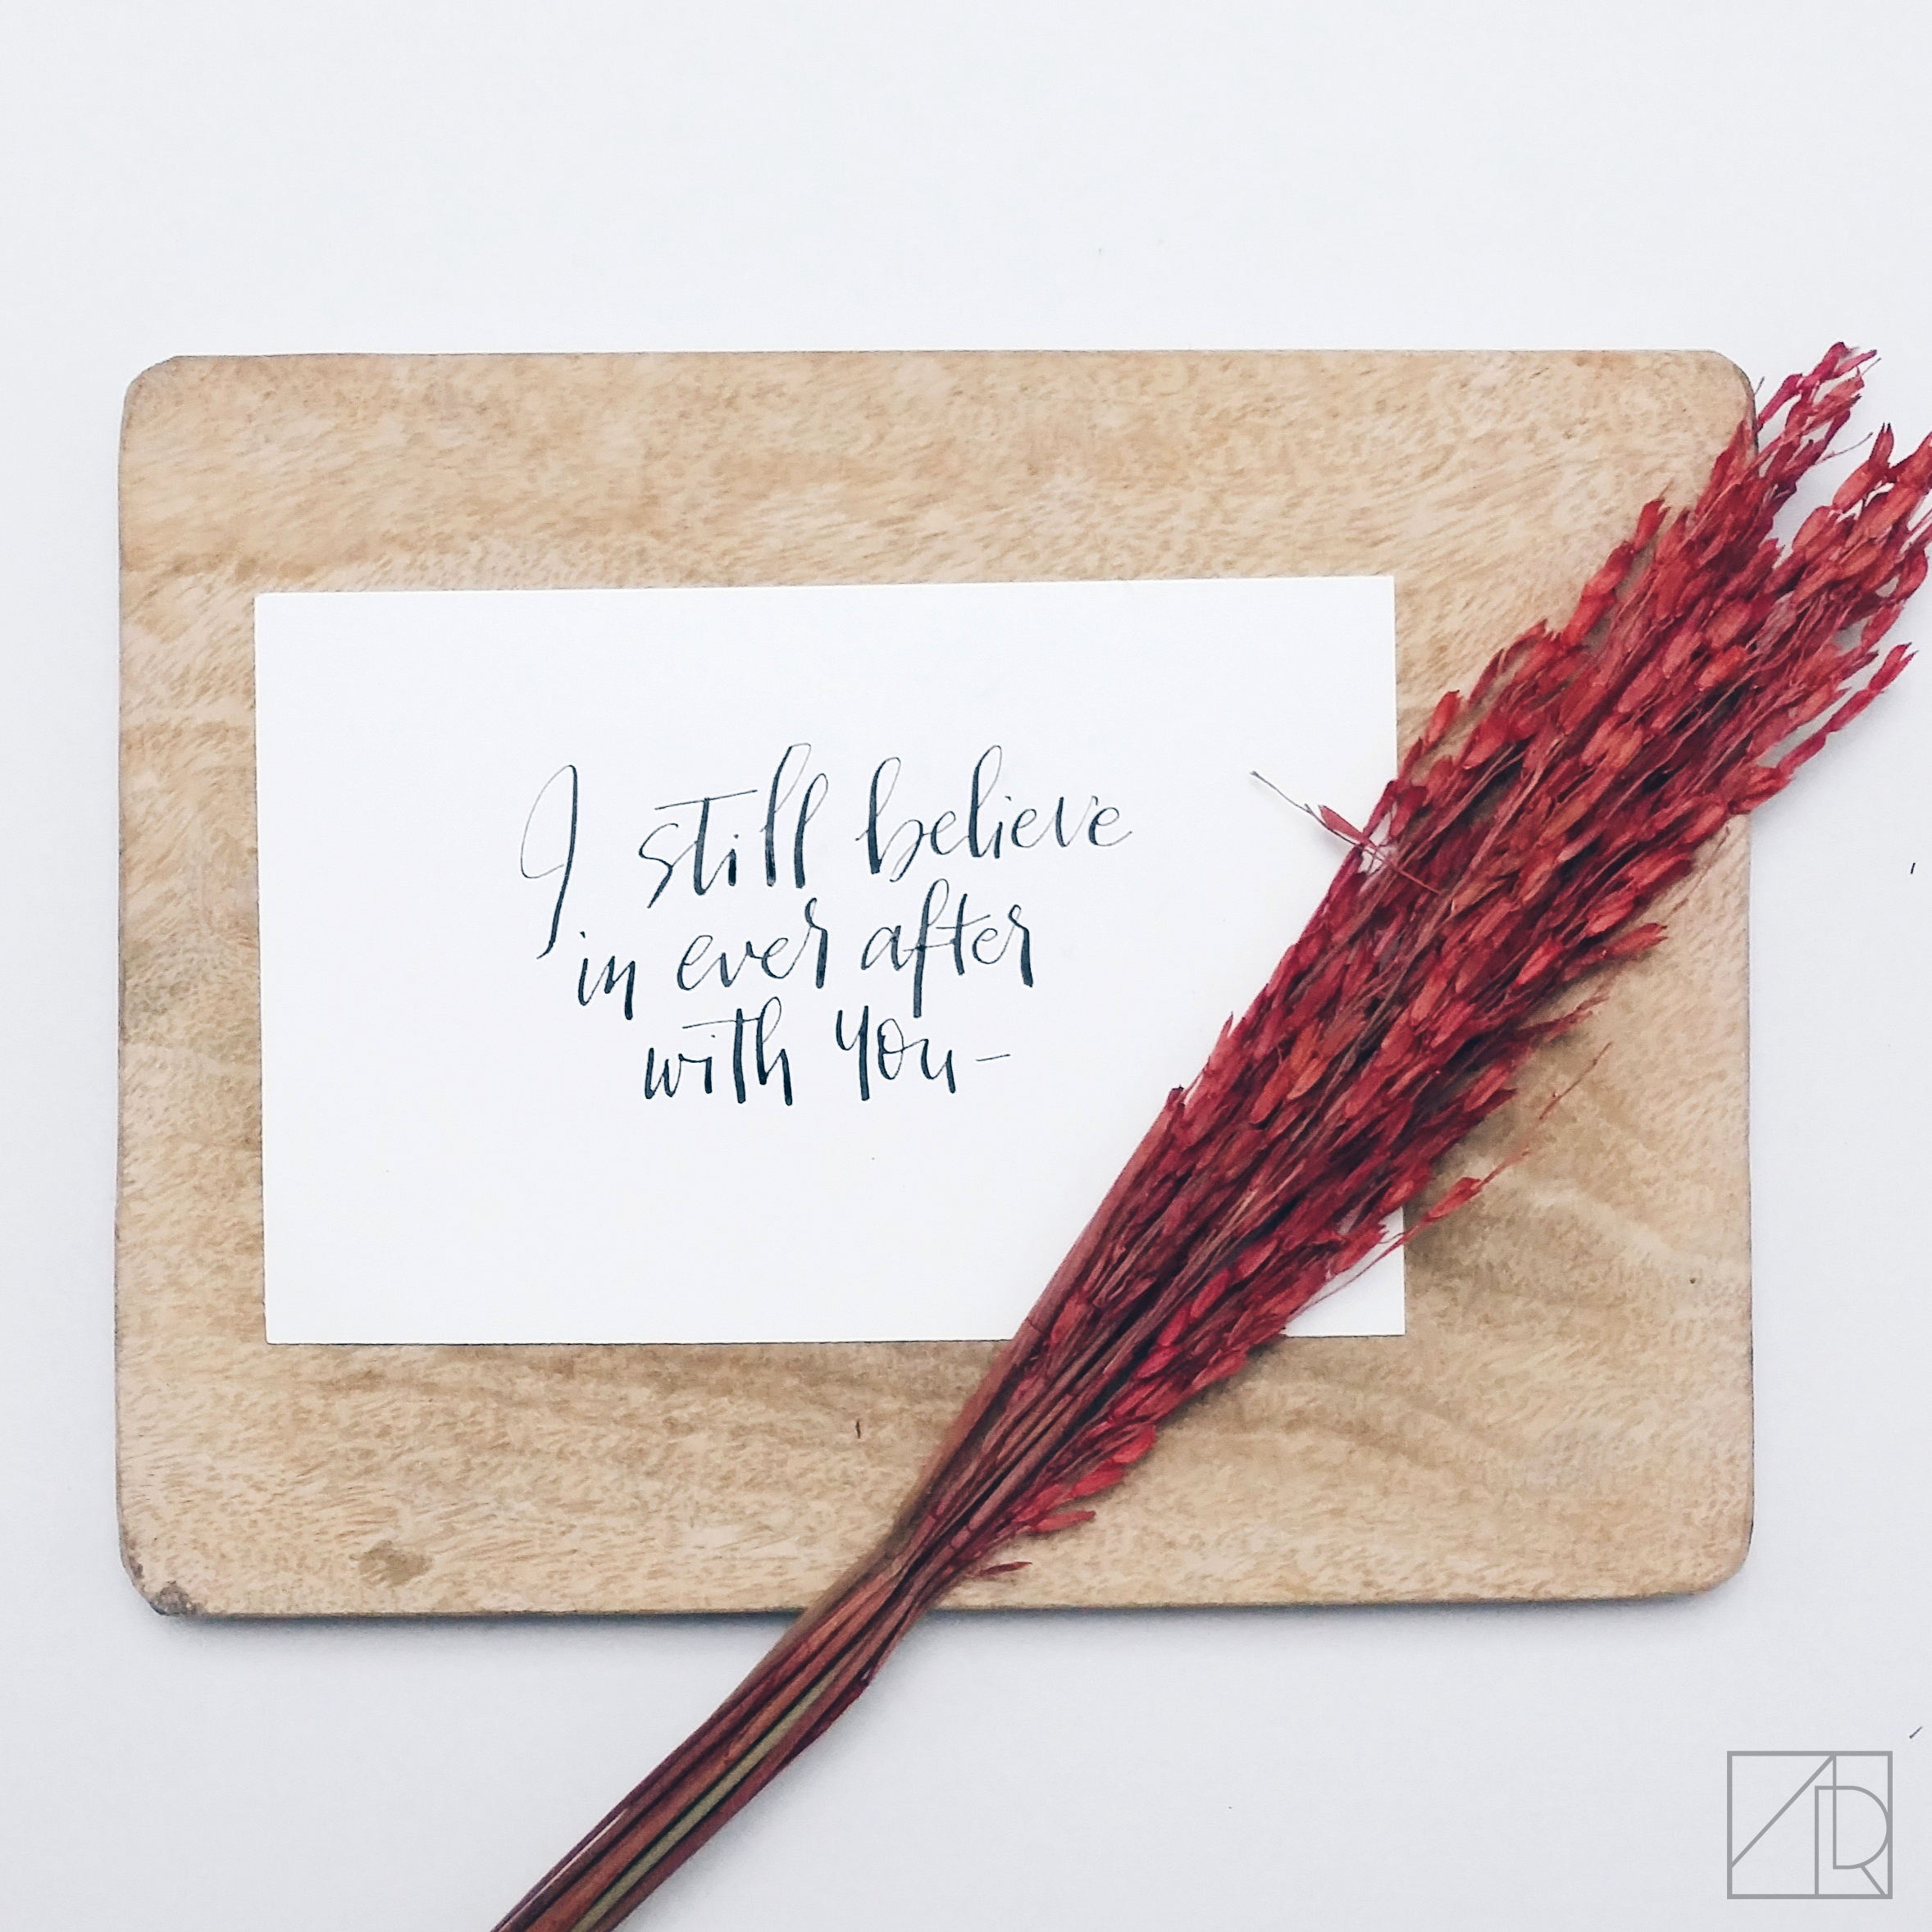 I still believe
in ever after
with you-